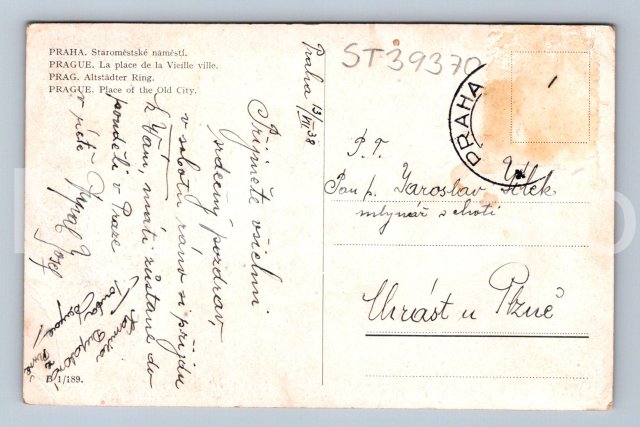 PRAHA. Staroměstské náměstí.
PRAGUE. La place de la Vieille ville.
PRAG. Altstädter Ring.
PRAGUE. Place of the Old City.
Praha 13/VII 38
Přijměte všichni
srdečný pozdrav,
v sobotu ráno přijedu
k Vám, máti zůstane do
pondělí v Praze
v úctě Josef
B 1/189.
ST39370
PRAHA
P. T.
Pan p. Jaroslav Jílek
mlynář s chotí
Chrást u Plzně